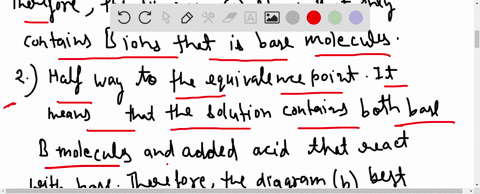 Therefore, the
only
contains B ions that is base molecules.
2.) Half way to the equivalence point. It
means that the solution contains both base
B molecules and added acid that react
with base. Therefore, the diagram (b) best